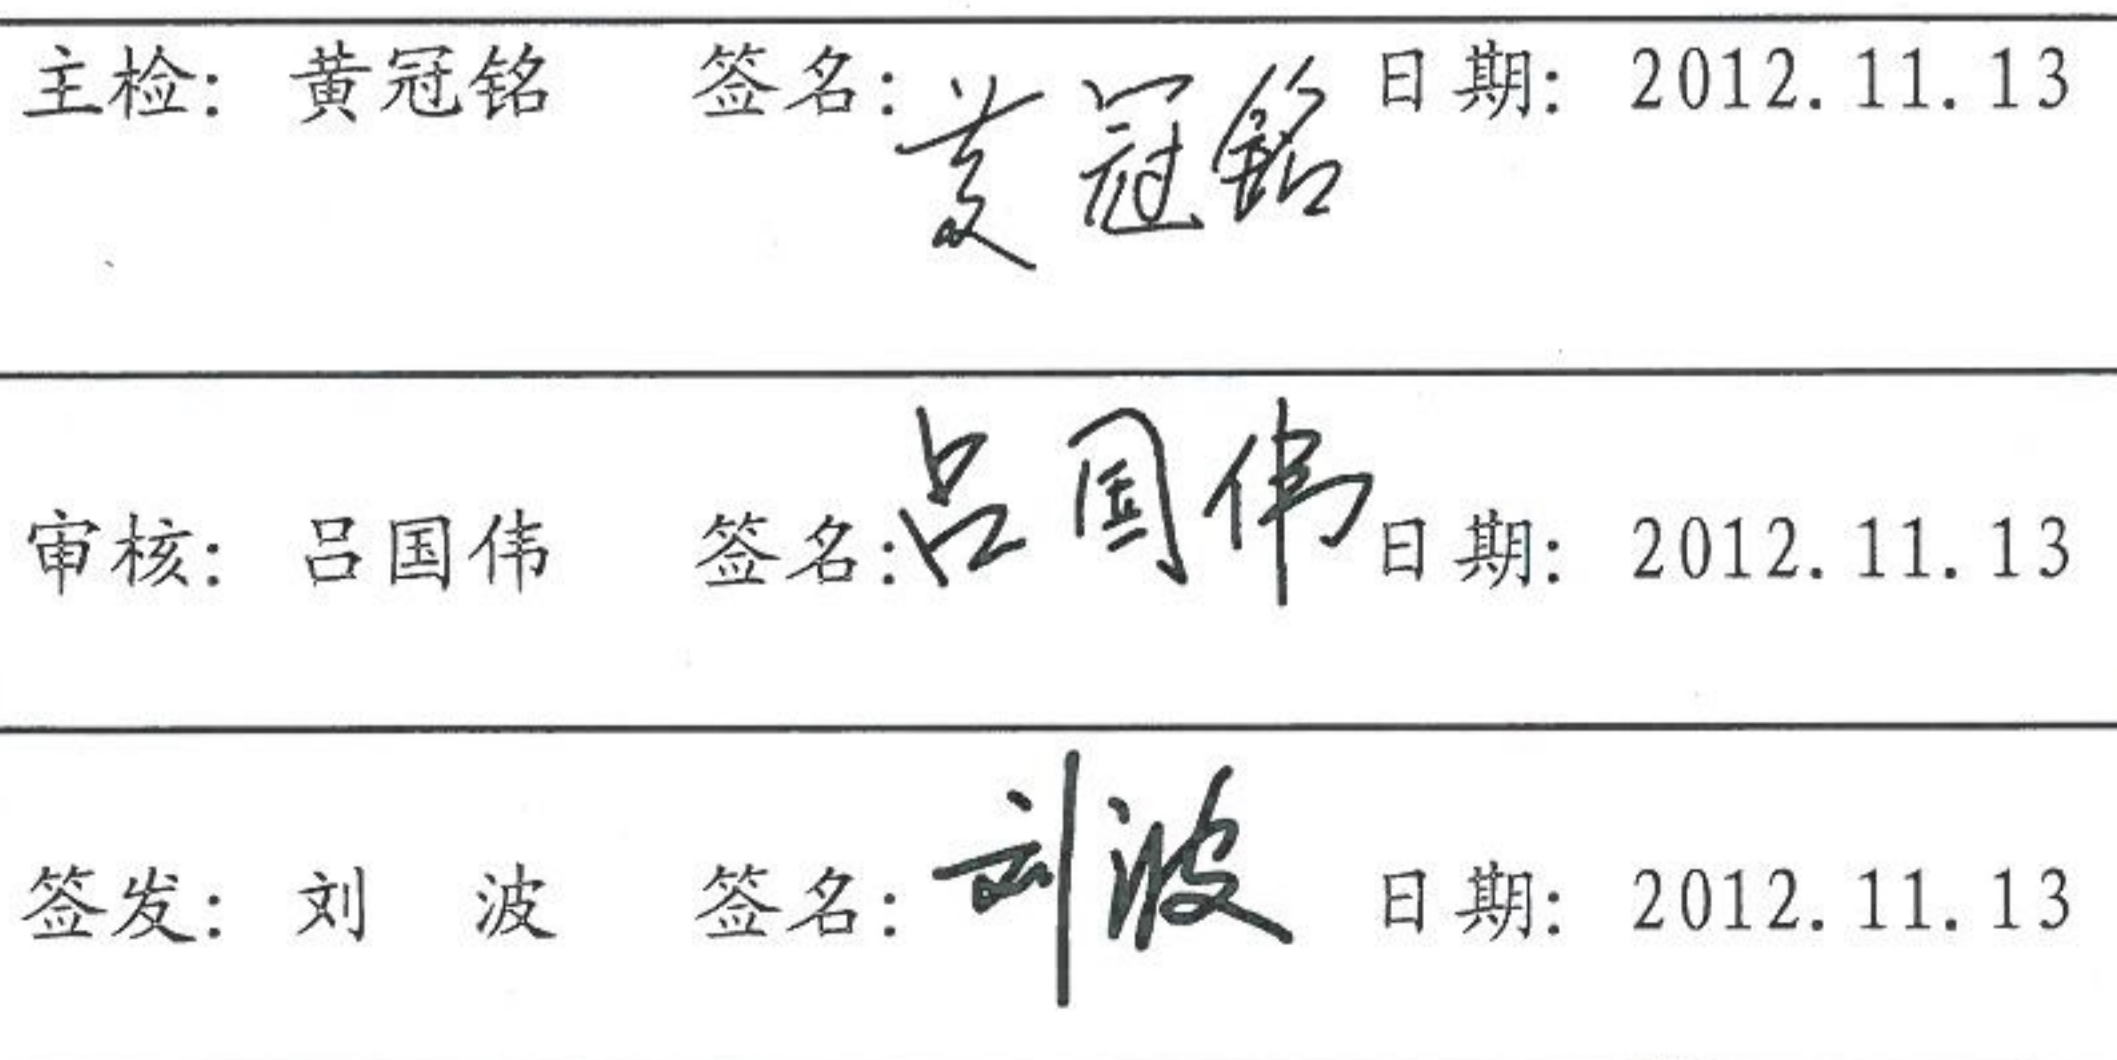 主检: 黄冠铭 签名: 黄冠铭 日期: 2012.11.13
审核: 吕国伟 签名: 吕国伟 日期: 2012.11.13
签发: 刘 波 签名: 刘波 日期: 2012.11.13